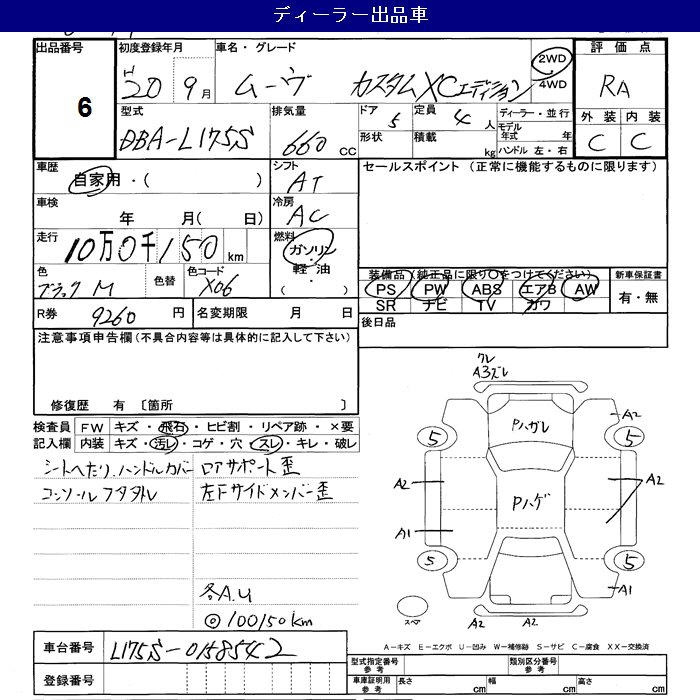 ディーラー出品車
出品番号
6
初度登録年月
H20 9月
車名・グレード
ムーヴ カスタムXCエディション
2WD
4WD
評価点
RA
外装 内装
C C
型式
DBA-L175S
排気量
660 CC
ドア
5
定員
4 人
形状
積載
kg
ディーラー・並行
モデル年式 年
ハンドル 左・右
車歴
自家用・( )
シフト
AT
セールスポイント (正常に機能するものに限ります)
車検
年 月( 日)
冷房
AC
走行
10万0千150 km
燃料
ガソリン
・
軽油
( )
色
ブラックM
色替
色コード
X06
装備品(純正品に限り○をつけてください)
PS PW ABS エアB AW
SR ナビ TV カワ
新車保証書
有・無
R券 9260 円
名変期限 月 日
後日品
注意事項申告欄(不具合内容等は具体的に記入して下さい)
修復歴 有 〔箇所 〕
検査員記入欄
FW キズ・飛石・ヒビ割・リペア跡・×要
内装 キズ・汚レ・コゲ・穴・スレ・キレ・破レ
シートへたり、ハンドルカバー
コンソールフタ外レ
ロアサポート歪
左下サイドメンバー歪
各A.U
◎100150km
ワレ
A3ズレ
Pハガレ
A2
5 5
A2 Pハゲ A2
A1
5 5
A1
スペア
A2 A2
A-キズ E-エクボ U-凹み W-補修跡 S-サビ C-腐食 XX-交換済
車台番号 L175S-0158542
登録番号
型式指定番号
参考
類別区分番号
参考
車庫証明用
参考
長さ cm 幅 cm 高さ cm